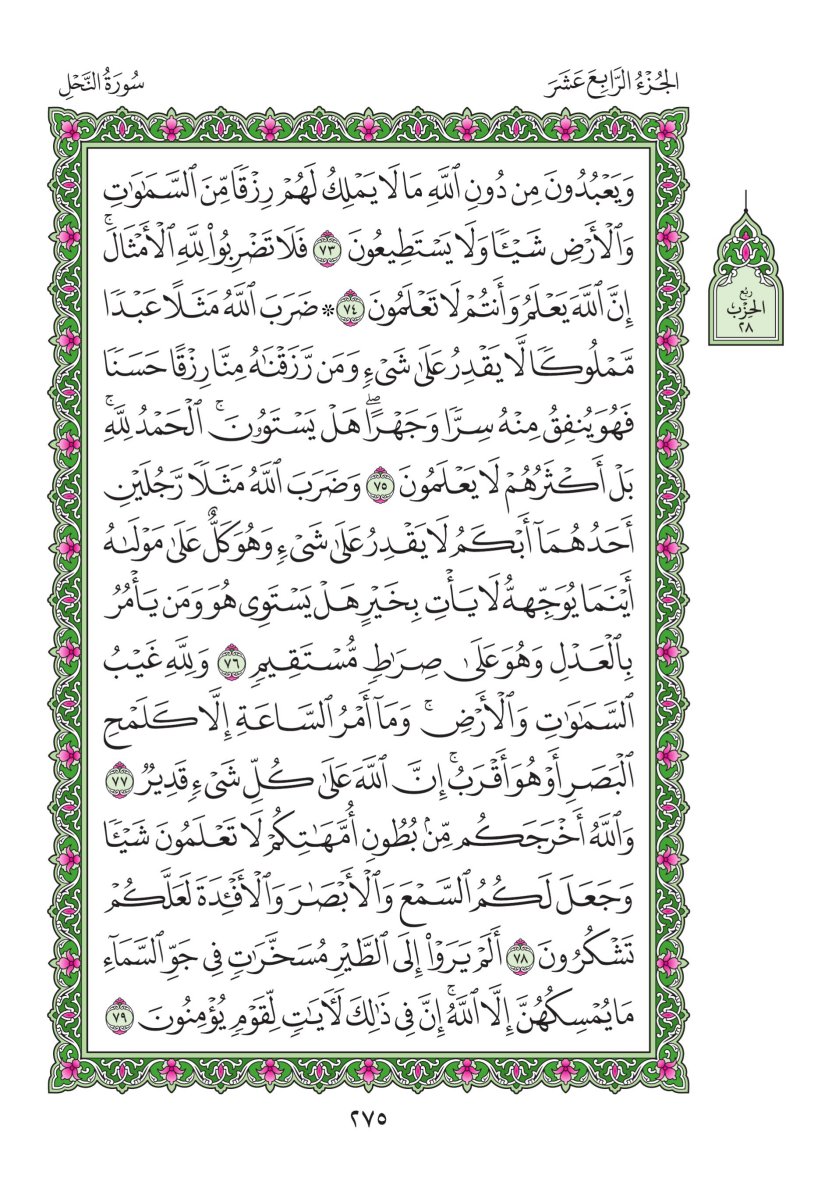 الجُزْءُ الرَّابِعَ عَشَرَ
سُورَةُ النَّحْلِ
وَيَعْبُدُونَ مِن دُونِ ٱللَّهِ مَا لَا يَمْلِكُ لَهُمْ رِزْقًا مِّنَ ٱلسَّمَٰوَٰتِ
وَٱلْأَرْضِ شَيْـًٔا وَلَا يَسْتَطِيعُونَ ٧٣ فَلَا تَضْرِبُوا۟ لِلَّهِ ٱلْأَمْثَالَ ۚ
إِنَّ ٱللَّهَ يَعْلَمُ وَأَنتُمْ لَا تَعْلَمُونَ ٧٤ * ضَرَبَ ٱللَّهُ مَثَلًا عَبْدًا
مَّمْلُوكًا لَّا يَقْدِرُ عَلَىٰ شَىْءٍ وَمَن رَّزَقْنَٰهُ مِنَّا رِزْقًا حَسَنًا
فَهُوَ يُنفِقُ مِنْهُ سِرًّا وَجَهْرًا ۖ هَلْ يَسْتَوُۥنَ ۚ ٱلْحَمْدُ لِلَّهِ ۚ
بَلْ أَكْثَرُهُمْ لَا يَعْلَمُونَ ٧٥ وَضَرَبَ ٱللَّهُ مَثَلًا رَّجُلَيْنِ
أَحَدُهُمَآ أَبْكَمُ لَا يَقْدِرُ عَلَىٰ شَىْءٍ وَهُوَ كَلٌّ عَلَىٰ مَوْلَىٰهُ
أَيْنَمَا يُوَجِّههُّ لَا يَأْتِ بِخَيْرٍ هَلْ يَسْتَوِى هُوَ وَمَن يَأْمُرُ
بِٱلْعَدْلِ وَهُوَ عَلَىٰ صِرَٰطٍ مُّسْتَقِيمٍ ٧٦ وَلِلَّهِ غَيْبُ
ٱلسَّمَٰوَٰتِ وَٱلْأَرْضِ ۚ وَمَآ أَمْرُ ٱلسَّاعَةِ إِلَّا كَلَمْحِ
ٱلْبَصَرِ أَوْ هُوَ أَقْرَبُ ۚ إِنَّ ٱللَّهَ عَلَىٰ كُلِّ شَىْءٍ قَدِيرٌ ٧٧
وَٱللَّهُ أَخْرَجَكُم مِّنۢ بُطُونِ أُمَّهَٰتِكُمْ لَا تَعْلَمُونَ شَيْـًٔا
وَجَعَلَ لَكُمُ ٱلسَّمْعَ وَٱلْأَبْصَٰرَ وَٱلْأَفْـِٔدَةَ لَعَلَّكُمْ
تَشْكُرُونَ ٧٨ أَلَمْ يَرَوْا۟ إِلَى ٱلطَّيْرِ مُسَخَّرَٰتٍ فِى جَوِّ ٱلسَّمَآءِ
مَا يُمْسِكُهُنَّ إِلَّا ٱللَّهُ ۚ إِنَّ فِى ذَٰلِكَ لَـَٔايَٰتٍ لِّقَوْمٍ يُؤْمِنُونَ ٧٩
ربع
الحِزْب
٢٨
٢٧٥